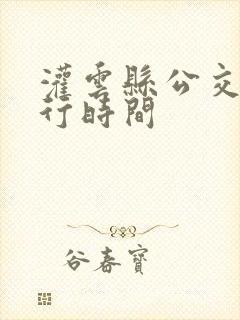 灌雲縣公交
行時間
谷春寶